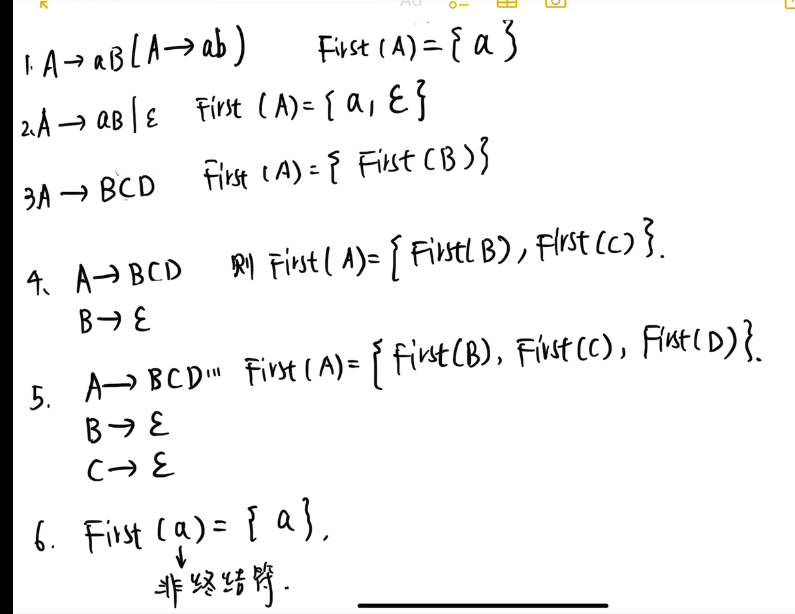 1. A → aB (A → ab) First (A) = { a }
2. A → aB | ε First (A) = { a, ε }
3 A → BCD First (A) = { First (B) }
4、 A → BCD 则 First (A) = { First(B), First(C) }.
B → ε
5. A → BCD''' First (A) = { First(B), First(C), First(D) }.
B → ε
C → ε
6. First (a) = { a }.
↓
非终结符.